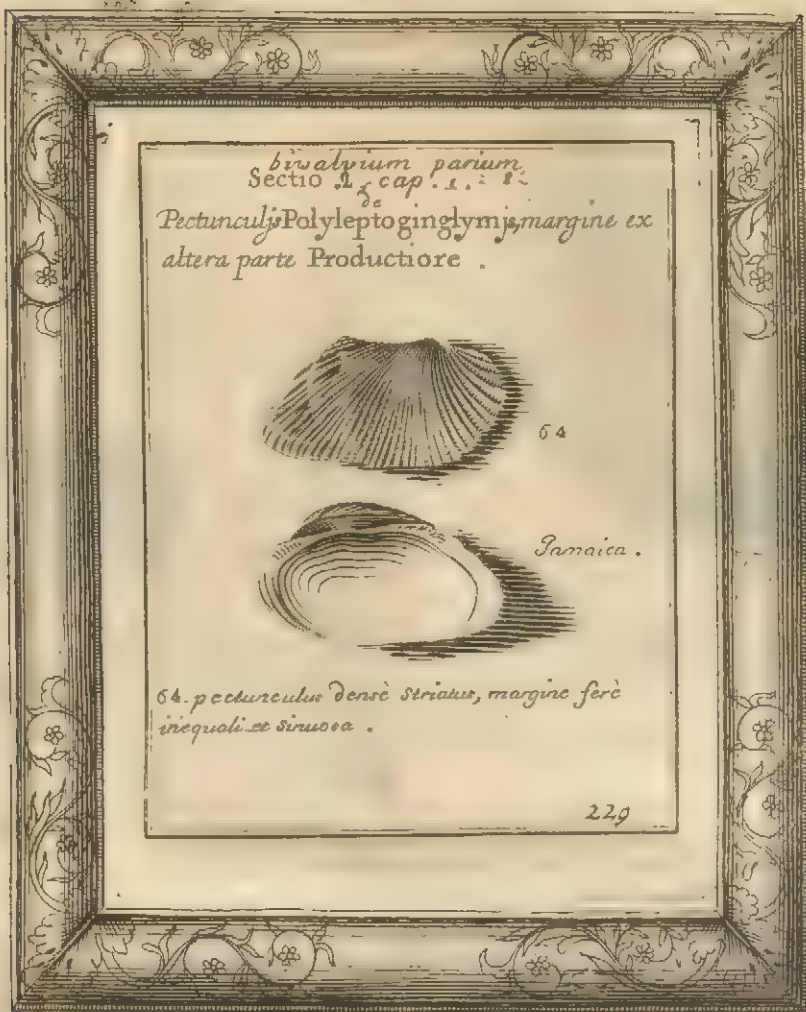 bivalvium parium
Sectio 2, cap. 1.
de
Pectunculis Polyleptoginglymis, margine ex
altera parte Productiore .
64
Jamaica .
64. pectunculus densè striatus, margine ferè
inequali et sinuosa .
229